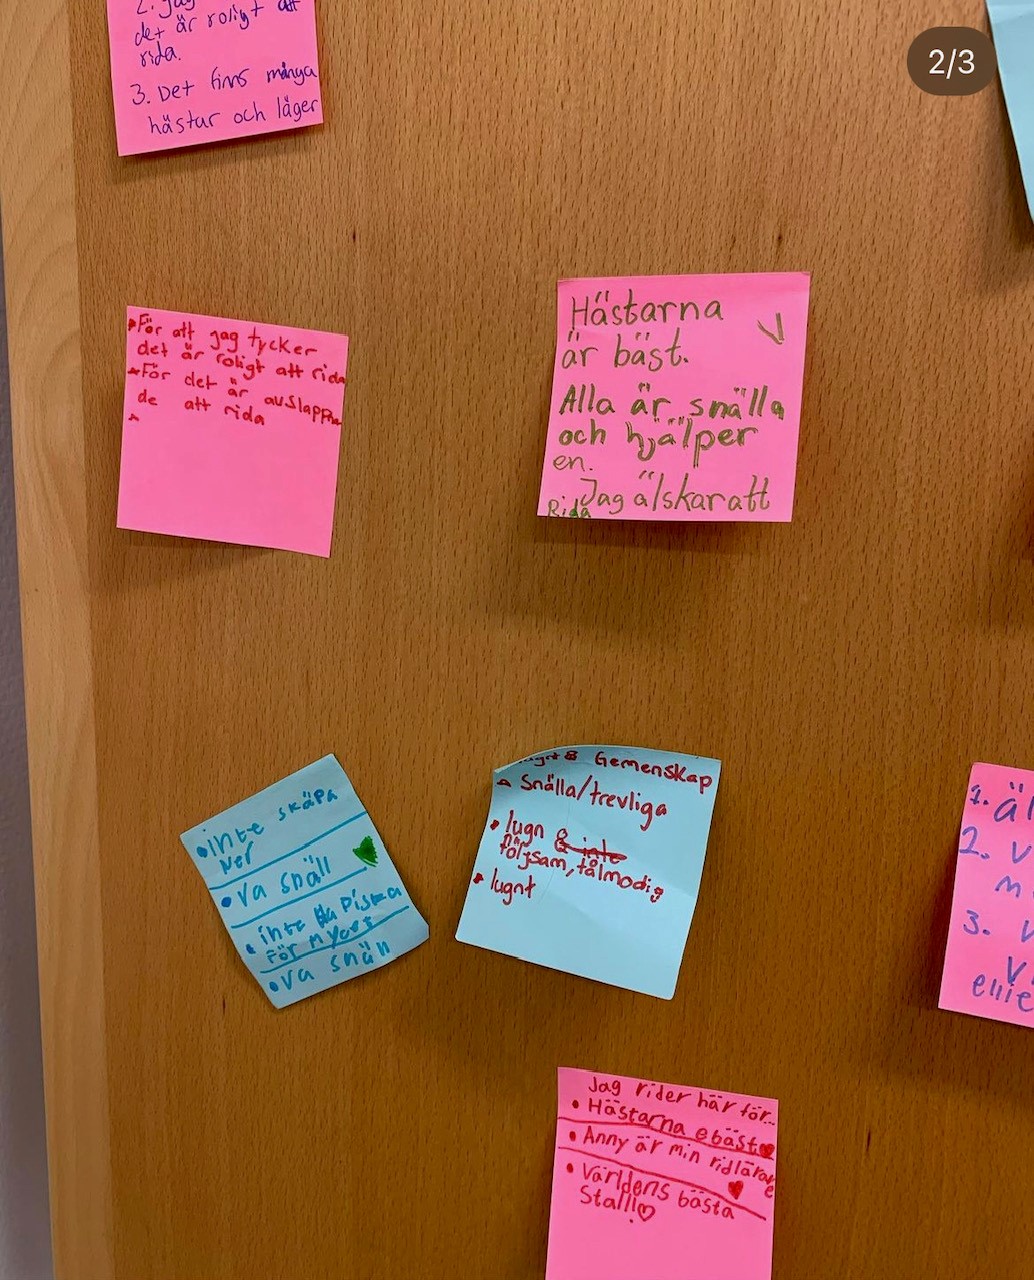 2/3
2. Jag
det är roligt att
rida.
3. Det finns många
hästar och läger
För att jag tycker
det är roligt att rida
För det är avslappna
de att rida
Hästarna
är bäst.
Alla är snälla
och hjälper
en.
Jag älskar att
Rida
• inte skäpa
ner
• va snäll
• inte ha piska
för mycet
• va snäll
& Gemenskap
Snälla/trevliga
• lugn & inte
följsam, tålmodig
• lugnt
1. äl
2. V
m
3. V
V
elle
Jag rider här för...
• Hästarna e bäst
• Anny är min ridlärare
• Världens bästa
Stall!